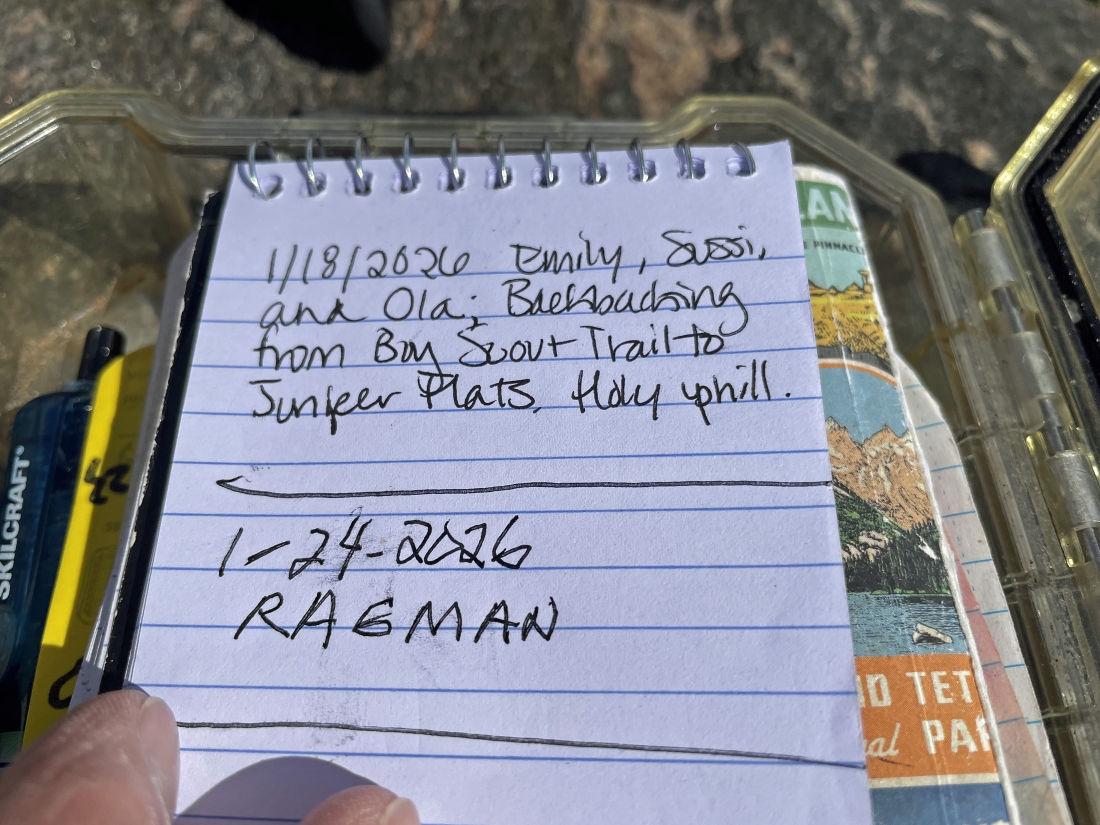 1/18/2026 Emily, Sussi,
and Ola; Backpacking
from Boy Scout Trail to
Juniper Flats. Holy uphill.
1-24-2026
RAGMAN
SKILCRAFT
PINNACL
ND TET
nal PAR